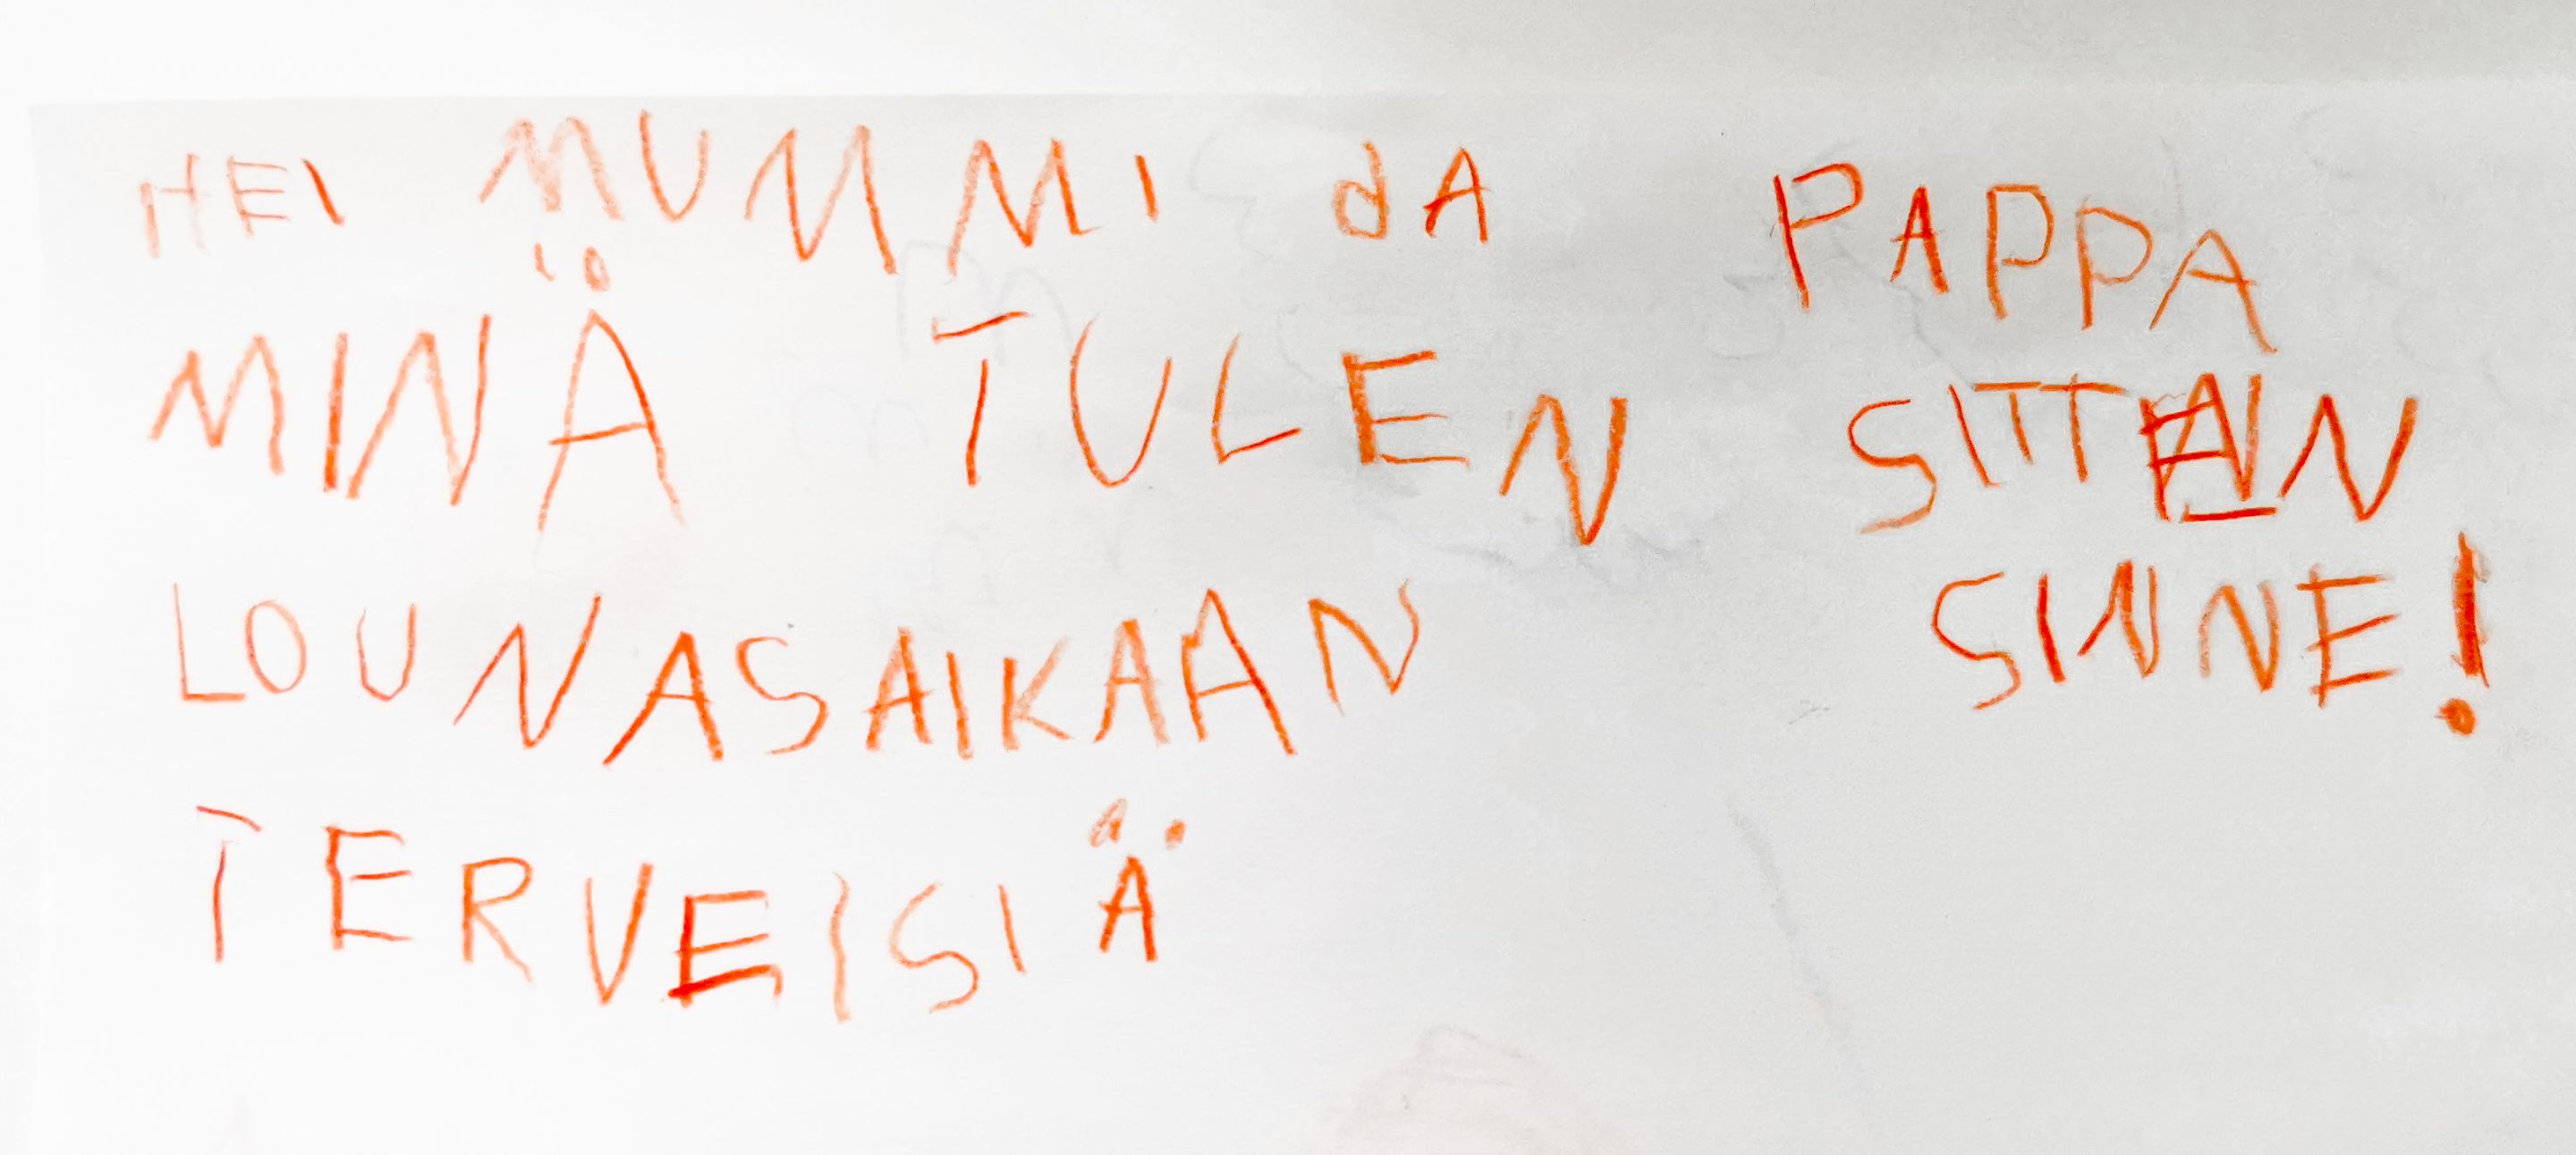 HEI MUMMI JA PAPPA
MINÄ TULEN SITTEN
LOUNASAIKAAN SINNE!
TERVEISIÄ